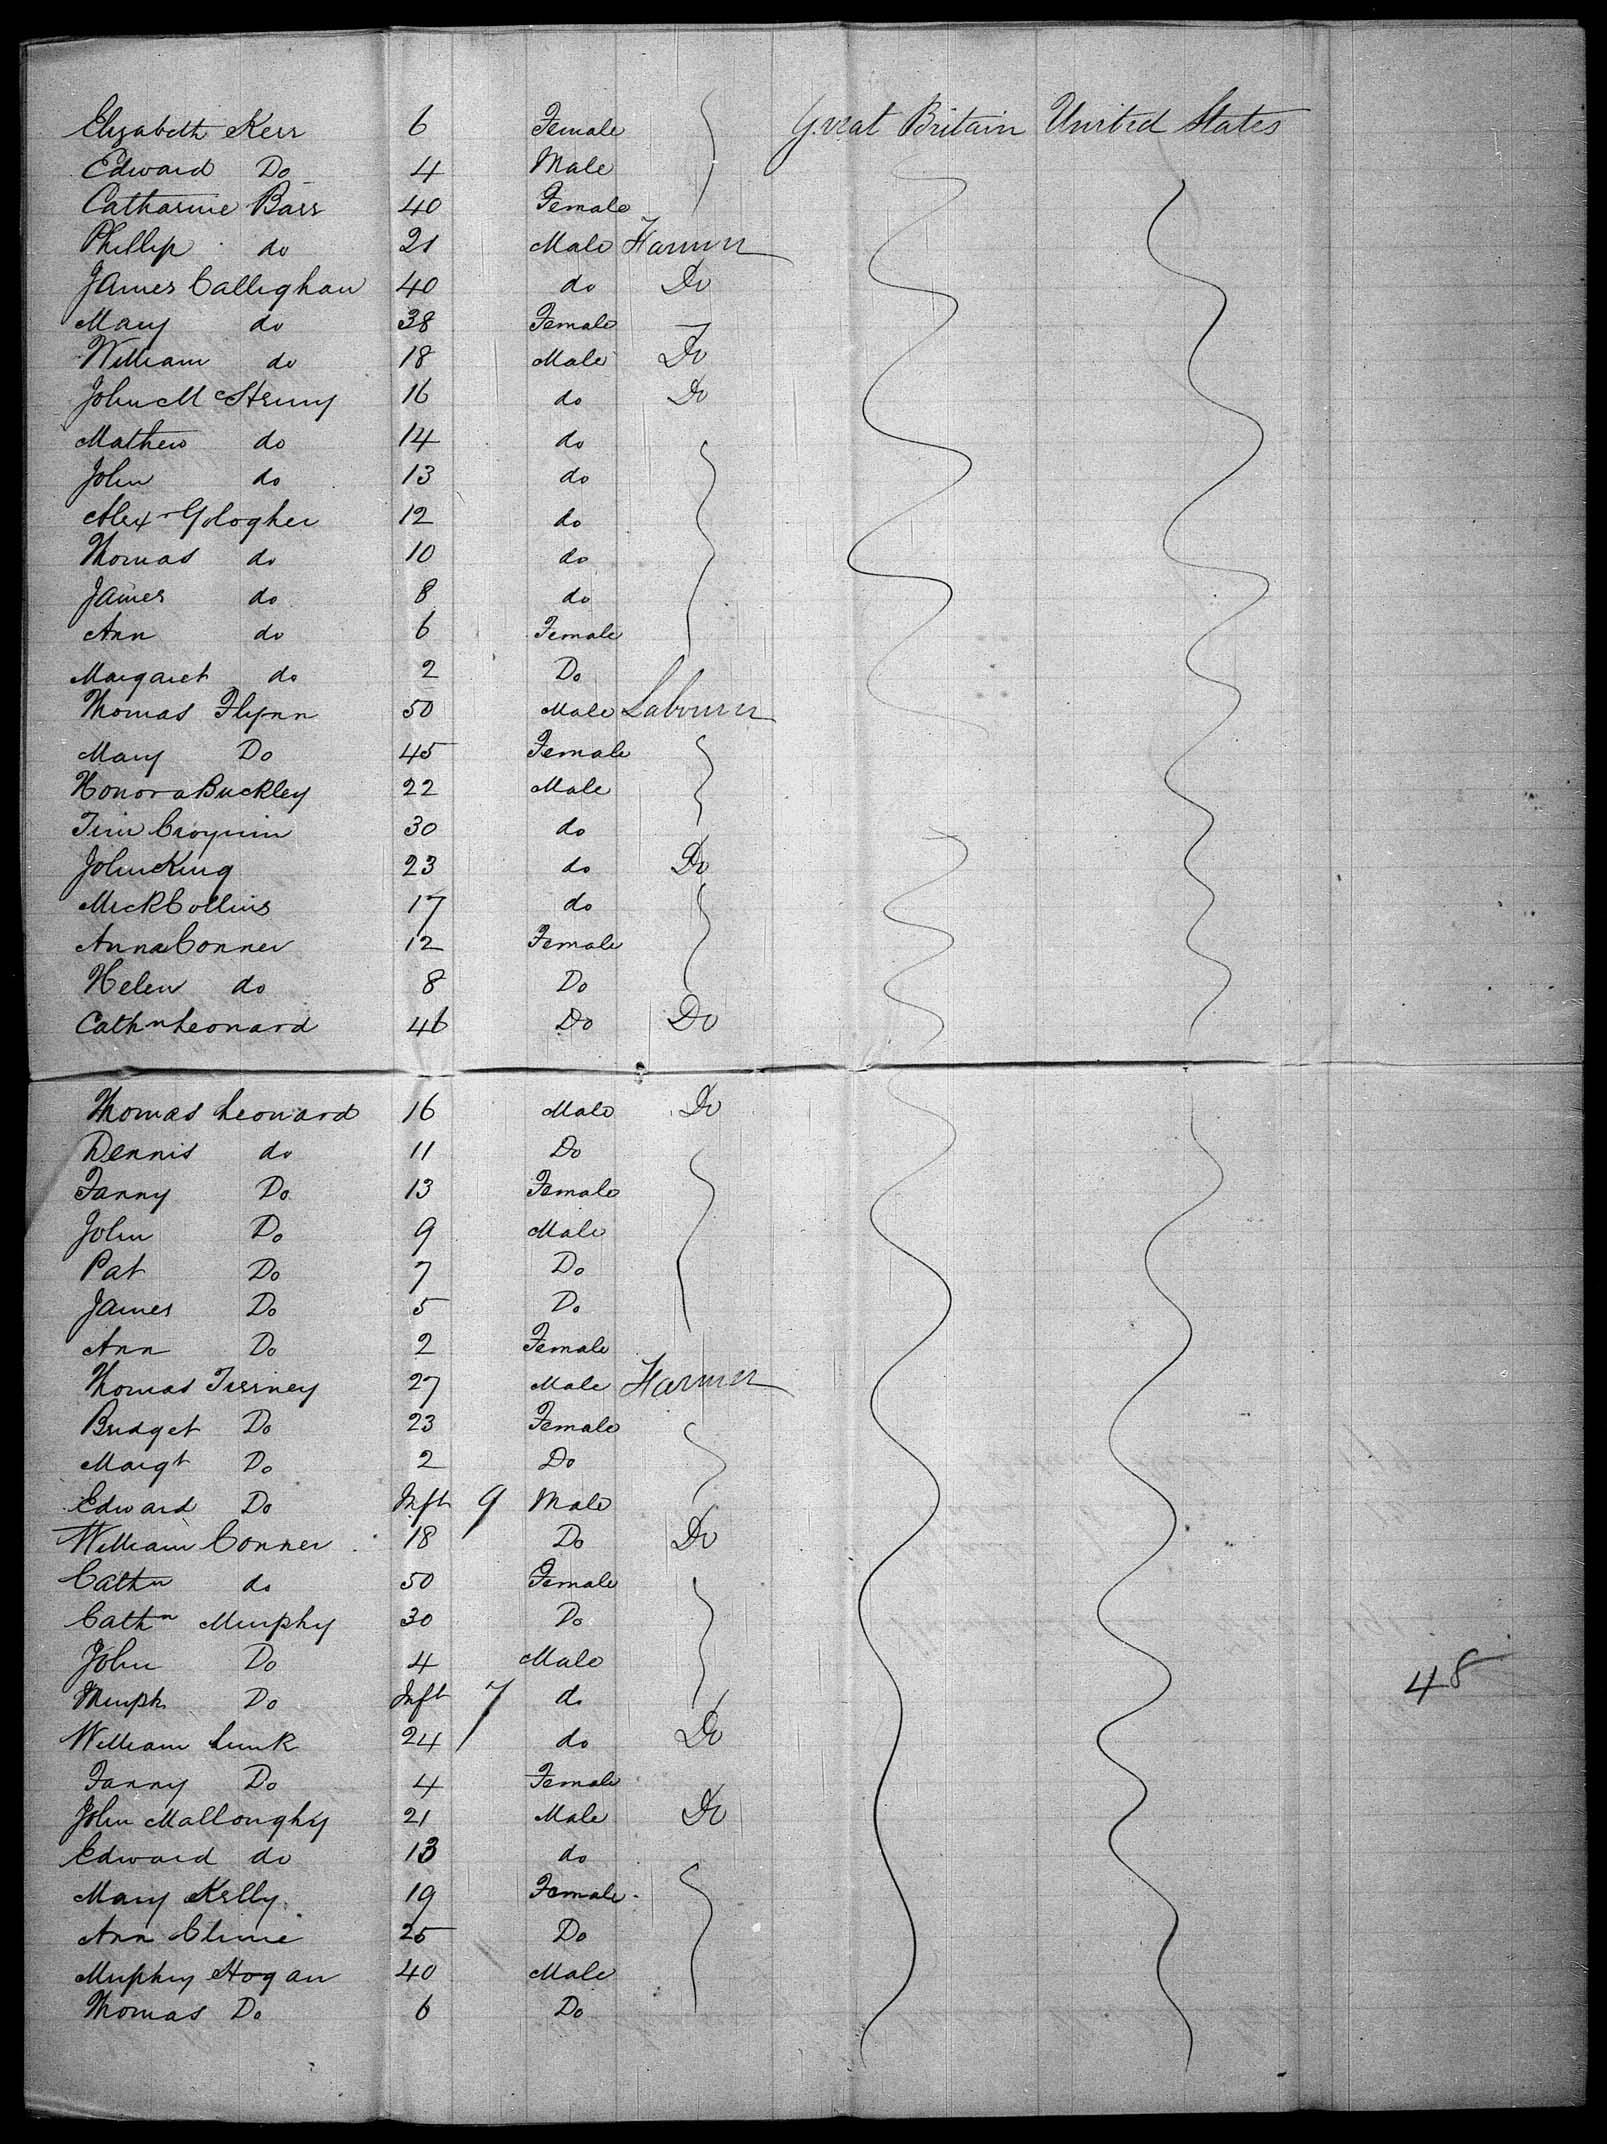 Elizabeth Kerr 6 Female Great Britain United States
Edward Do 4 Male
Catharine Barr 40 Female
Phillip do 21 Male Farmer
James Calleghan 40 do Do
Mary do 38 Female
William do 18 Male Do
John Mc 16 do Do
Mathew do 14 do
John do 13 do
Alexr Gologher 12 do
Thomas do 10 do
James do 8 do
Ann do 6 Female
Margaret do 2 Do
Thomas Flynn 50 Male Labourer
Mary Do 45 Female
Honora Buckley 22 Male
Tim 30 do
John King 23 do Do
Mick Collins 17 do
Anna Conner 12 Female
Helen do 8 Do
Cathn Leonard 46 Do Do
Thomas Leonard 16 Male Do
Dennis do 11 Do
Fanny Do 13 Female
John Do 9 Male
Pat Do 7 Do
James Do 5 Do
Ann Do 2 Female
Thomas Tierney 27 Male Farmer
Bridget Do 23 Female
Margt Do 2 Do
Edward Do Inft 9 Male
William Conner 18 Do Do
Cathn do 50 Female
Cathn Murphy 30 Do
John Do 4 Male
Murph Do Inft 7 do 48
William Lunk 24 do Do
Fanny Do 4 Female
John Malloughy 21 Male Do
Edward do 13 do
Mary Kelly 19 Female
Ann Clime 25 Do
Murphy Hogan 40 Male
Thomas Do 6 Do